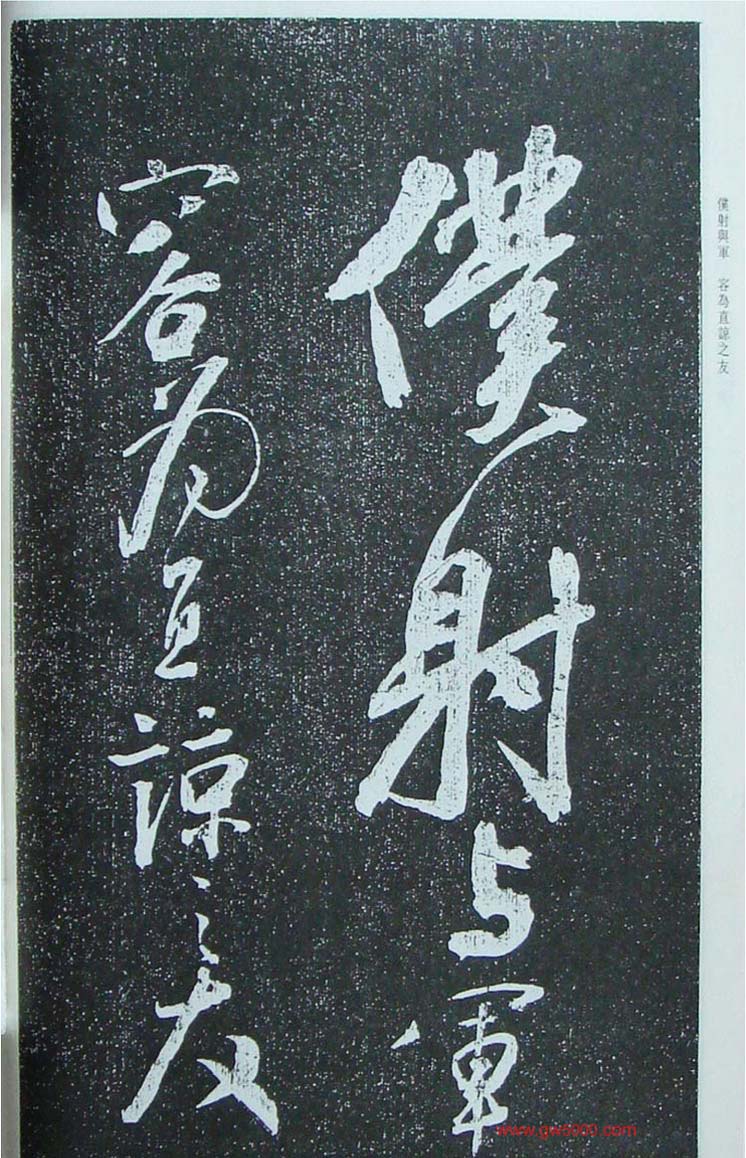 僕射与軍
容为直諒之友
僕射與軍　容為直諒之友
www.gw8000.com